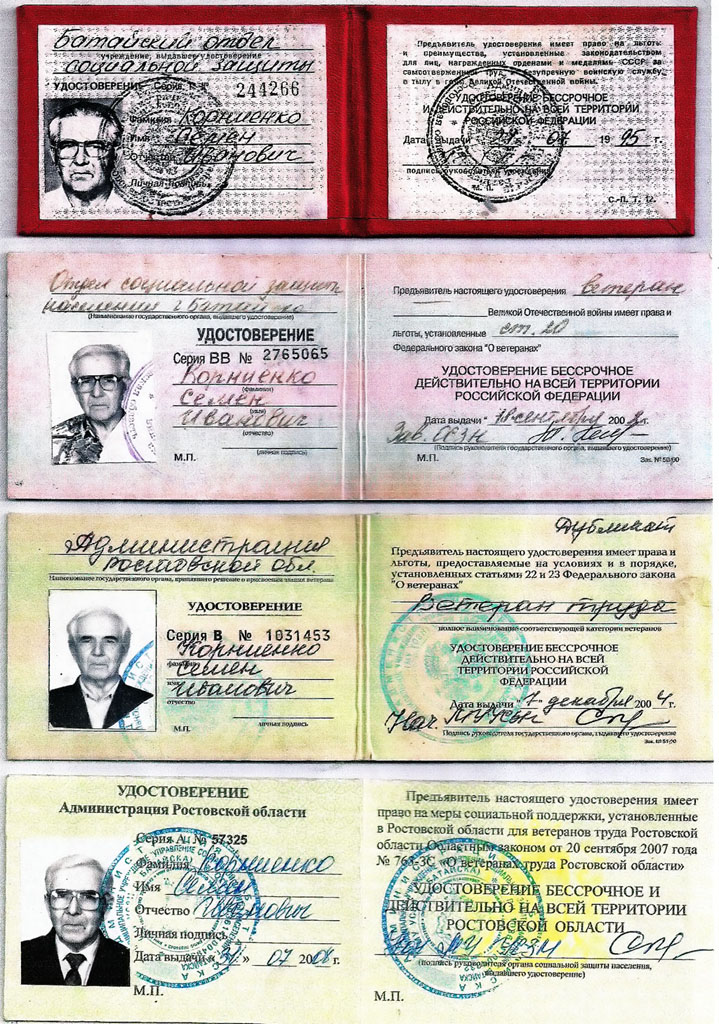 Батайский отдел
учреждение, выдавшего удостоверение
социальной защиты
УДОСТОВЕРЕНИЕ Серия Г
244266
Фамилия Корниенко
Имя Семен
Отчество Иванович
Личная подпись
Предъявитель удостоверения имеет право на льготы
и преимущества, установленные законодательством
для лиц, награжденных орденами и медалями СССР за
самоотверженный труд и безупречную воинскую службу
в тылу в годы Великой Отечественной войны.
УДОСТОВЕРЕНИЕ БЕССРОЧНОЕ
И ДЕЙСТВИТЕЛЬНО НА ВСЕЙ ТЕРРИТОРИИ
РОССИЙСКОЙ ФЕДЕРАЦИИ
Дата выдачи 07 1995 г.
подпись руководителя учреждения
С.-П. Т. 12.
Отдел социальной защиты
населения г Батайска
(Наименование государственного органа, выдавшего удостоверение)
УДОСТОВЕРЕНИЕ
Серия ВВ № 2765065
Корниенко
(фамилия)
Семен
(имя)
Иванович
(отчество)
(личная подпись)
М.П.
Предъявитель настоящего удостоверения ветеран
Великой Отечественной войны имеет права и
льготы, установленные ст. 20
Федерального закона "О ветеранах"
УДОСТОВЕРЕНИЕ БЕССРОЧНОЕ
ДЕЙСТВИТЕЛЬНО НА ВСЕЙ ТЕРРИТОРИИ
РОССИЙСКОЙ ФЕДЕРАЦИИ
Дата выдачи "18 сентября 200 г.
Зав.
(Подпись руководителя государственного органа, выдавшего удостоверение)
М.П.
Зак. № 50/00
Дубликат
Администрация
Ростовской обл.
Наименование государственного органа, принявшего решение о присвоении звания ветерана
УДОСТОВЕРЕНИЕ
Серия В № 1031453
Корниенко
фамилия
Семен
имя
Иванович
отчество
личная подпись
М.П.
Предъявитель настоящего удостоверения имеет права и
льготы, предоставляемые на условиях и в порядке,
установленных статьями 22 и 23 Федерального закона
"О ветеранах"
Ветеран труда
полное наименование соответствующей категории ветеранов
УДОСТОВЕРЕНИЕ БЕССРОЧНОЕ
ДЕЙСТВИТЕЛЬНО НА ВСЕЙ
ТЕРРИТОРИИ РОССИЙСКОЙ
ФЕДЕРАЦИИ
Дата выдачи "7" декабря 2004 г.
Нач
Подпись руководителя государственного органа, выдавшего удостоверение
УДОСТОВЕРЕНИЕ
Администрация Ростовской области
Серия А № 57325
Фамилия Корниенко
Имя Семен
Отчество Иванович
Личная подпись
Дата выдачи 07 2008 г.
М.П.
Предъявитель настоящего удостоверения имеет
право на меры социальной поддержки, установленные
в Ростовской области для ветеранов труда Ростовской
области Областным законом от 20 сентября 2007 года
№ 763-ЗС «О ветеранах труда Ростовской области»
УДОСТОВЕРЕНИЕ БЕССРОЧНО И
ДЕЙСТВИТЕЛЬНО НА ВСЕЙ ТЕРРИТОРИИ
РОСТОВСКОЙ ОБЛАСТИ
(подпись руководителя органа социальной защиты населения,
выдавшего удостоверение)
М.П.